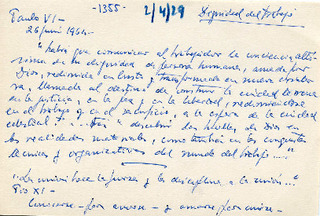 Paulo VI - -1355- 2/4/29 Dignidad del trabajo
26 junio 1964.-
"habrá que comunicar al trabajador la conciencia altí-
sima de su dignidad de persona humana, amada por
Dios, redimida en Cristo y transformada en nueva criatu-
ra, llamada al destino de construir la ciudad terrena
en la justicia, en la paz y en la libertad, redimiéndose
en el trabajo y en el sacrificio, a la espera de la ciudad
celestial." descubrir las huellas de Dios en
las realidades materiales, como también en los conjuntos
técnicos y organizativos del mundo del trabajo..."
"La unión hace la fuerza y la disciplina a la unión..."
Pio XI -
Conocerse - para amarse - y amarse para unirse -